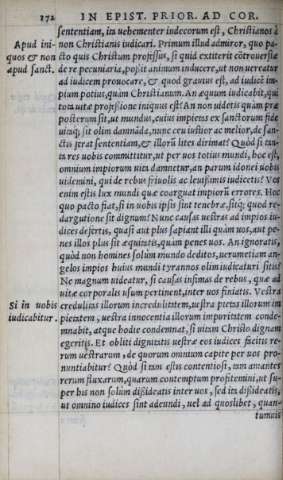 172 IN EPIST. PRIOR. AD COR.
sententiam, in uehementer indecorum est, Christianos à
Apud ini-
quos & non
apud sanct.
non Christianis iudicari. Primum illud admiror, quo pa-
cto quis Christum professus, si quid extiterit cōtrouersiæ
de re pecuniaria, possit animum inducere, ut non uereatur
ad iudicem prouocare, &, quod grauius est, ad iudicē im-
pium potius, quàm Christianum. An æquum iudicabit, qui
tota uitæ professione iniquus est? An non uidetis quàm præ
posterum sit, ut mundus, cuius impietas ex sanctorum fide
uitaq; sit olim damnāda, nunc ceu iustior ac melior, de san-
ctis ferat sententiam, & illorū lites dirimat? Quòd si tan-
ta res uobis committitur, ut per uos totius mundi, hoc est,
omnium impiorum uita damnetur, an parum idonei uobis
uidemini, qui de rebus friuolis ac leuissimis iudicetis? Vos
enim estis lux mundi quæ coarguat impiorū errores. Hoc
quo pacto fiat, si in uobis ipsis sint tenebræ, sitq; quod re-
dargutione sit dignum? Nunc causas uestras ad impios iu-
dices defertis, quasi aut plus sapiant illi quàm uos, aut pe-
nes illos plus sit æquitatis, quàm penes uos. An ignoratis,
quòd non homines solùm mundo deditos, uerumetiam an-
gelos impios huius mundi tyrannos olim iudicaturi sitis?
Ne magnum uideatur, si causas infimas de rebus, quæ ad
uitæ corporalis usum pertinent, inter uos finiatis. Vestra
Si in uobis
iudicabitur.
credulitas illorum incredulitatem, uestra pietas illorum im
pietatem, uestra innocentia illorum impuritatem conde-
mnabit, atque hodie condemnat, si uitam Christo dignam
egeritis. Et obliti dignitatis uestræ eos iudices facitis re-
rum uestrarum, de quorum omnium capite per uos pro-
nuntiabitur? Quòd si tam estis contentiosi, tam amantes
rerum fluxarum, quarum contemptum profitemini, ut su-
per his non solùm dissideatis inter uos, sed ita dissideatis,
ut omnino iudices sint adeundi, uel ad quoslibet, quan-
tumuis